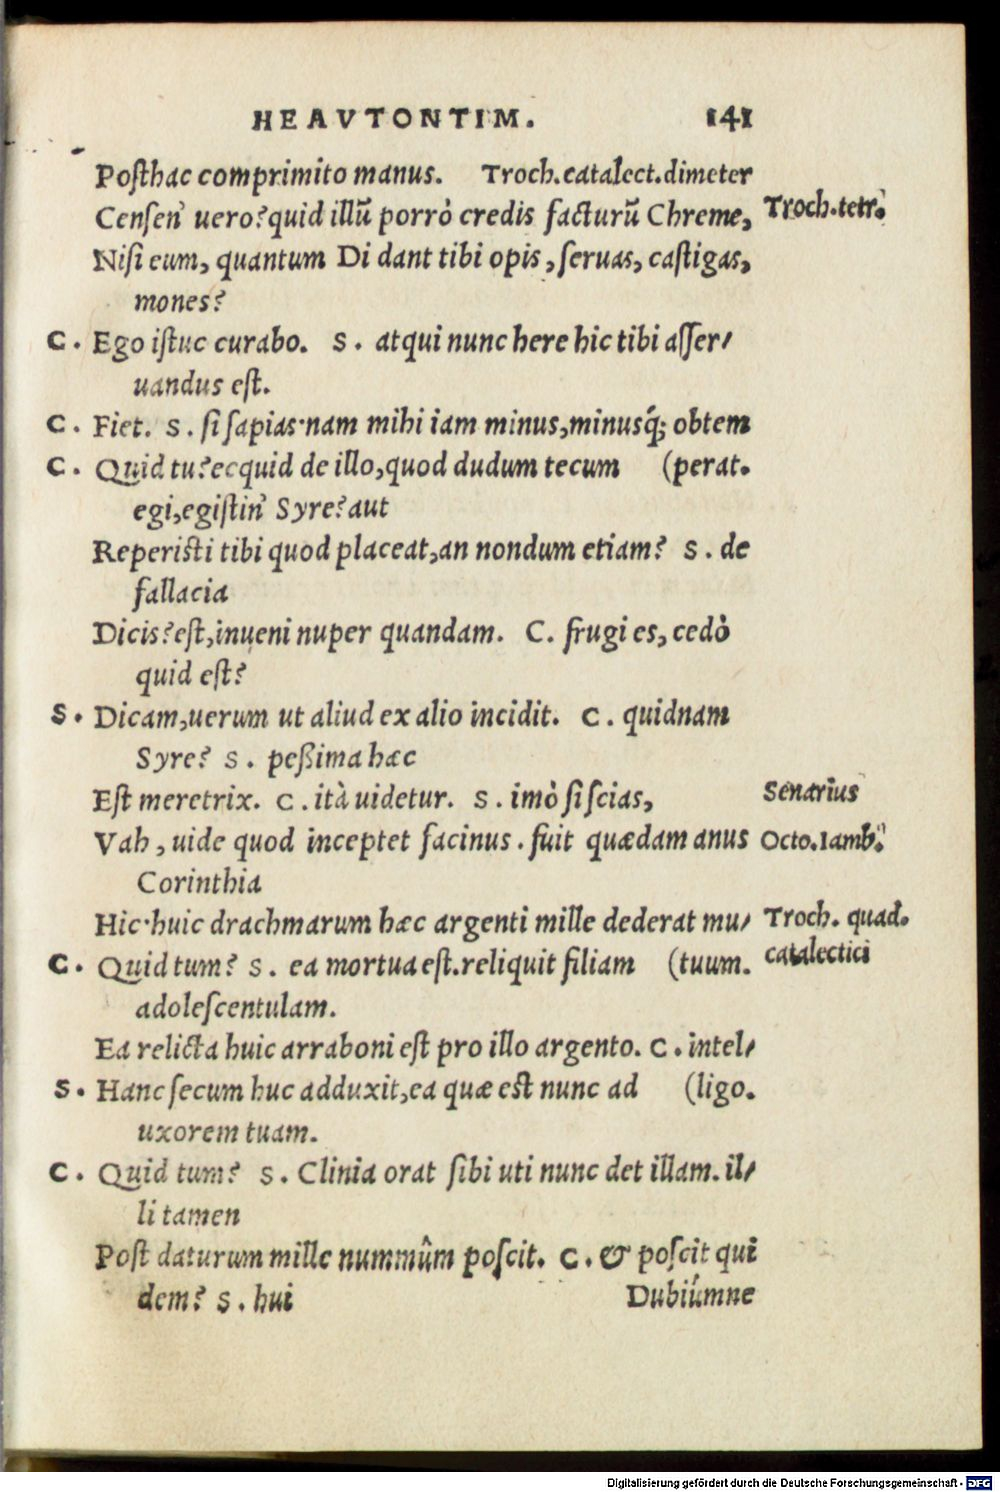 HEAVTONTIM. 141
Posthac comprimito manus. Troch.catalect.dimeter
Censen' uero?quid illũ porrò credis facturũ Chreme, Troch.tetr.
Nisi eum, quantum Di dant tibi opis, seruas, castigas,
mones?
C. Ego istuc curabo. S. atqui nunc here hic tibi asser/
uandus est.
C. Fiet. S. si sapias·nam mihi iam minus,minusq́; obtem
C. Quid tu?ecquid de illo,quod dudum tecum (perat.
egi,egistin' Syre?aut
Reperisti tibi quod placeat,an nondum etiam? S. de
fallacia
Dicis?est,inueni nuper quandam. C. frugi es, cedò
quid est?
S. Dicam,uerum ut aliud ex alio incidit. C. quidnam
Syre? S. peßima hæc
Est meretrix. C. ità uidetur. S. imò si scias, Senarius
Vah, uide quod inceptet facinus. fuit quædam anus Octo.Iamb.
Corinthia
Hic·huic drachmarum hæc argenti mille dederat mu/ Troch. quad.
C. Quid tum? S. ea mortua est.reliquit filiam (tuum. catalectici
adolescentulam.
Ea relicta huic arraboni est pro illo argento. C. intel/
S. Hanc secum huc adduxit,ea quæ est nunc ad (ligo.
uxorem tuam.
C. Quid tum? S. Clinia orat sibi uti nunc det illam. il/
li tamen
Post daturum mille nummûm poscit. C. & poscit qui
dem? S. hui Dubiúmne
Digitalisierung gefördert durch die Deutsche Forschungsgemeinschaft - DFG